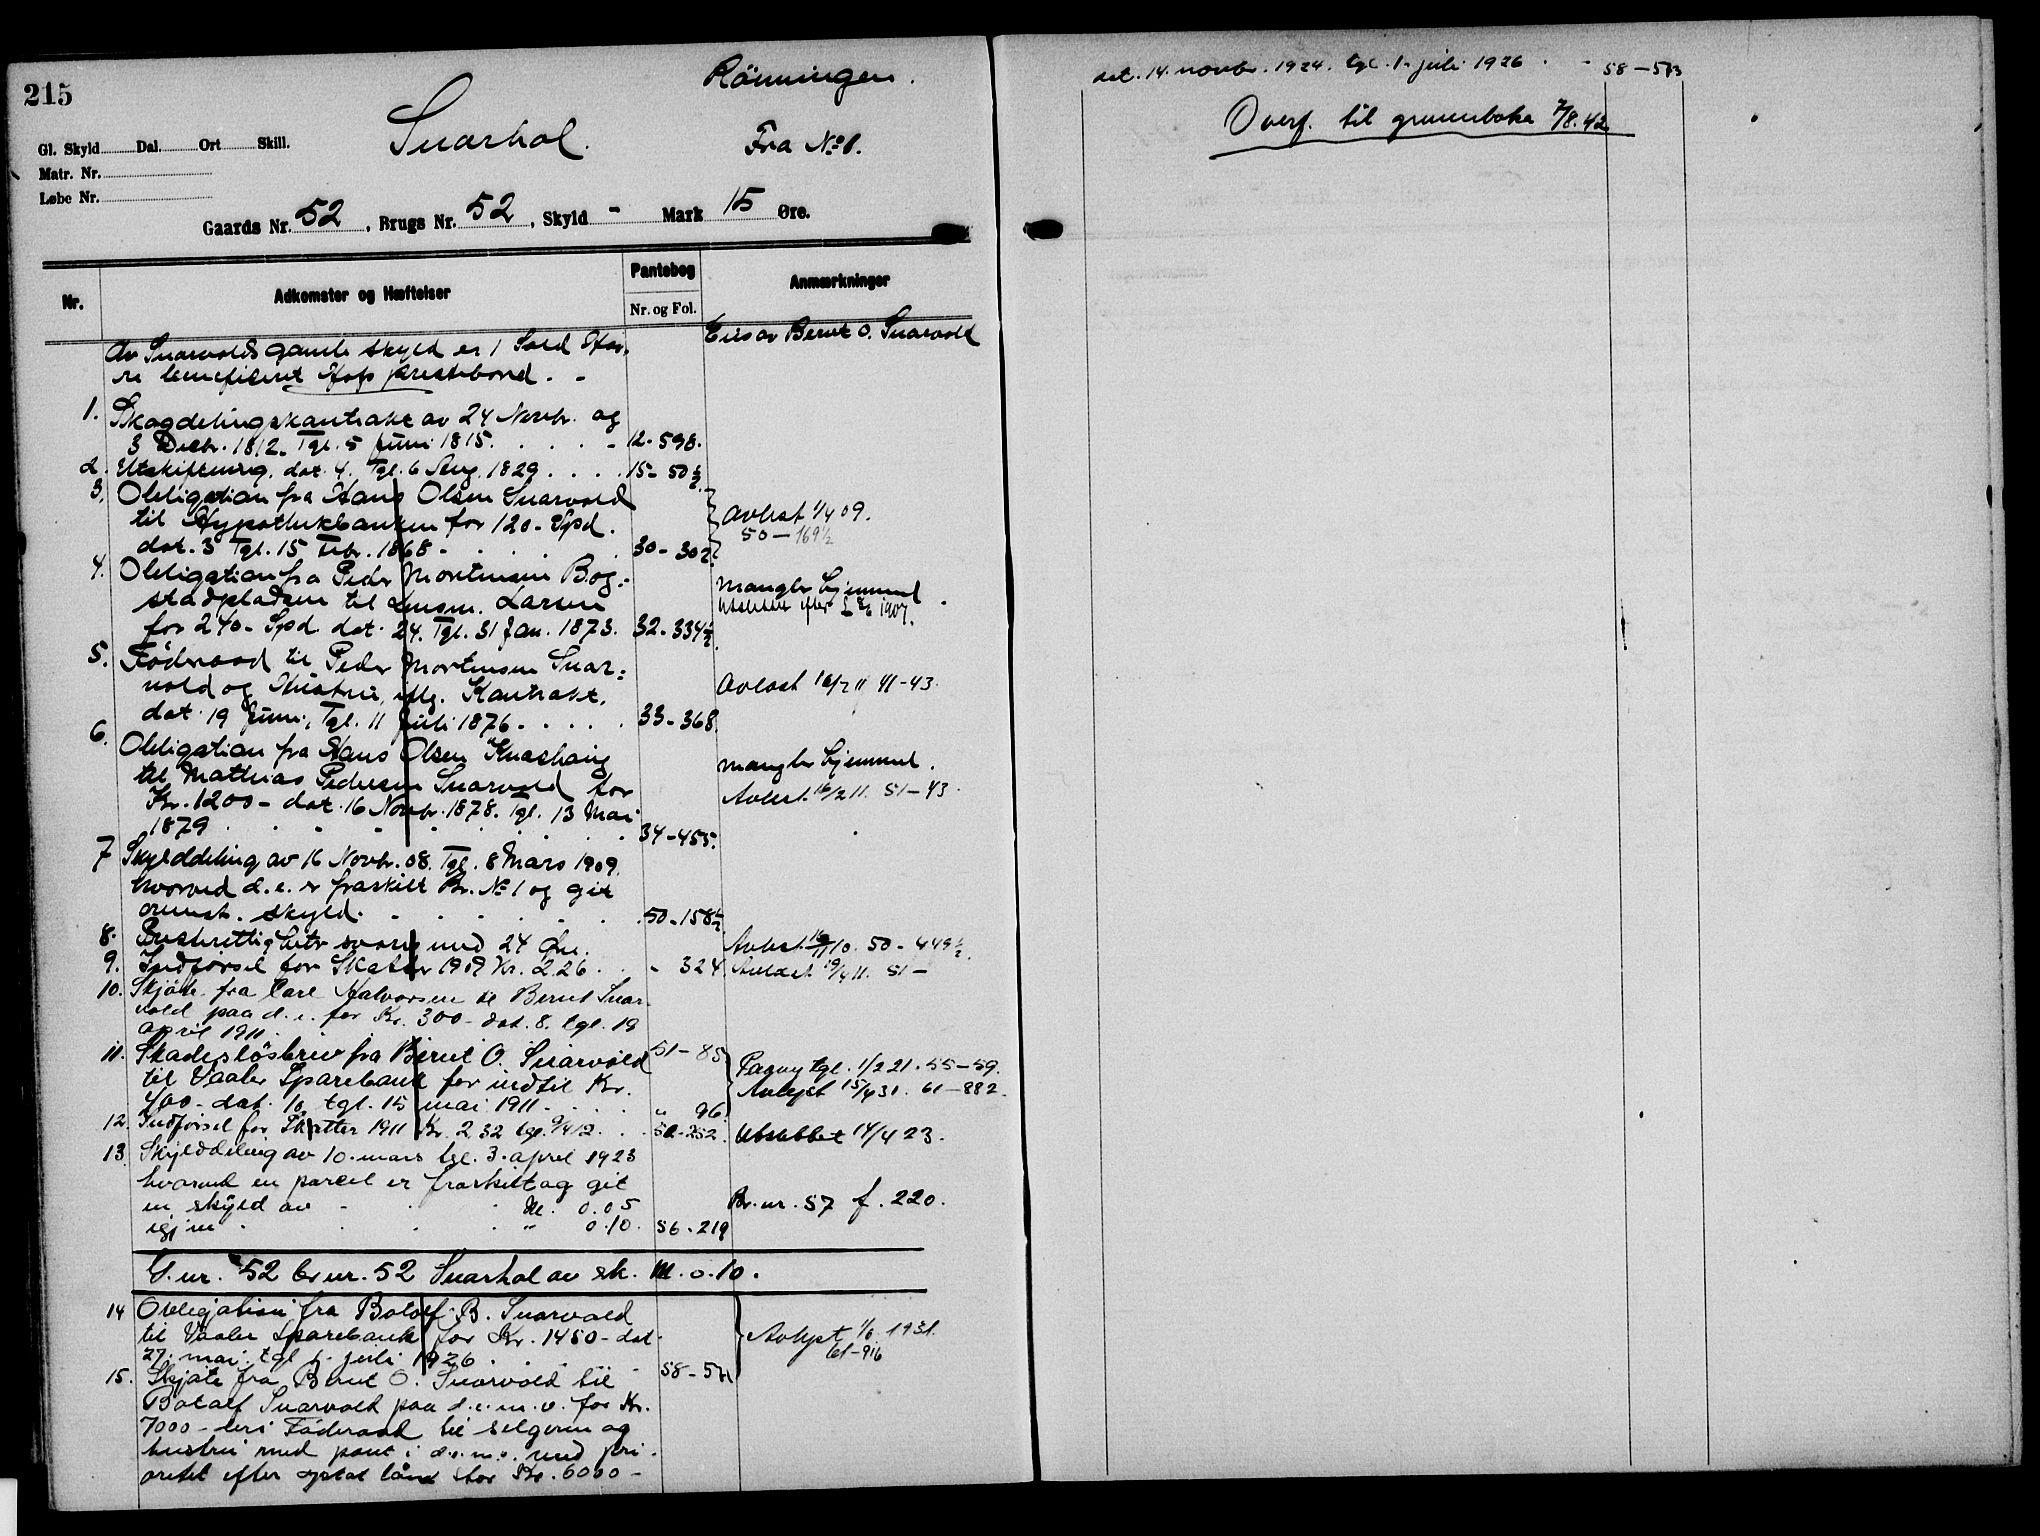 215
Rönningen.
Snarhol.
Fra No 1.
Gl. Skyld Dal. Ort Skill.
Matr. Nr.
Løbe Nr.
Gaards Nr. 52, Brugs Nr. 52, Skyld - Mark 15 Øre.
Nr.
Adkomster og Hæftelser
Pantebog
Nr. og Fol.
Anmærkninger
Eies av Bernt O. Snarvold
Av Snarvolds gamle skyld er 1 Sold
beneficeret Hofs prestebord. -
1. Skogdelingskontrakt av 24 Novbr. og
3 Decbr. 1812. Tgl. 5 Juni 1815. 12-598.
2. Utskiftning, dat. 4. Tgl. 6 Aug. 1829 . . . . 15-50½
3. Obligation fra Hans Olsen Snarvold
til Hypothekbanken for 120 - Spd.
dat. 3 Tgl. 15 Febr. 1868 - 30-302
Avløst 1/4 09.
50-169½
4. Obligation fra Peder Mortensen Bog-
stadpladsen til Lensm. Larsen
for 240 - Spd. dat. 24. Tgl. 31 Jan. 1873. 32-334½
Mangler hjemmel
Utslettet efter L 1907.
5. Föderaad til Peder Mortensen Snar-
vold og Hustru, iflg. Kontrakt,
dat. 19 Juni, Tgl. 11 Juli 1876 - 33-368.
Avløst 16/2 11 51-43.
6. Obligation fra Hans Olsen Knashaug
til Mathias Pedersen Snarvold for
Kr. 1200 - dat. 16 Novbr. 1878. Tgl. 13 Mai
1879 34-455.
Mangler hjemmel.
Avløst. 16/2 11. 51-43.
7 Skylddeling av 16 Novbr. 08. Tgl. 8 Mars 1909.
hvorved d. e. er fraskilt Br. No 1 og git
ovennst. skyld. 50-158½
8. Presterettigheter svares med 24 Øre.
Avløst. 10. 50-449½.
9. Indførsel for Skatter 1909 Kr. 2.26. - 324
Avløst 19/4 11. 51-
10. Skjöte fra Carl Halvorsen til Bernt Snar-
vold paa d. e. for Kr. 300 - dat. 8. tgl. 19
april 1911. 51-85
11. Skadeslösbrev fra Bernt O. Snarvold
til Vaaler Sparebank for indtil Kr.
400 - dat. 10. tgl. 15 mai 1911 - " 96.
Paany tgl. 1/2 21. 55-59.
Avlyst 15/4 31. 61-882.
12. Indförsel for Skatter 1911 Kr. 2.32 tgl. 9/4 12. 52-252.
Utslettet 14/4 23.
13. Skylddeling av 10. mars tgl. 3. april 1923
hvorved en parcel er fraskilt og git
en skyld av M. 0.05
igjen " 0.10. 56-219
Br. nr. 57 f. 220.
G. nr. 52 br. nr. 52 Snarhol av sk. M. 0.10.
14 Obligation fra Botolf B. Snarvold
til Vaaler Sparebank for Kr. 1450 - dat.
27. mai. tgl. 1. juli 1926. 58-571
Avlyst 1/6. 1931.
61-916
15. Skjöte fra Bernt O. Snarvold til
Botolf Snarvold paa d. e. m. v. for Kr.
7000 - heri Föderaad til selgeren og
hustru med pant i d. e. m. v. med pri-
oritet efter optat lån stor Kr. 6000 -
dat. 14. novbr. 1924. tgl. 1. juli 1926 . - 58-573
Overf. til grunnboka 7/8. 42.